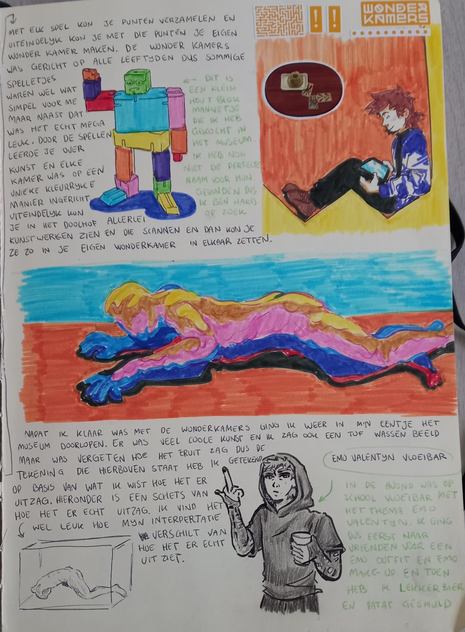 MET ELK SPEL KON JE PUNTEN VERZAMELEN EN
UITEINDELYK KON JE MET DIE PUNTEN JE EIGEN
WONDER KAMER MAKEN. DE WONDER KAMERS
WAS GERICHT OP ALLE LEEFTYDEN DUS SOMMIGE
SPELLETJES
WAREN WEL WAT
SIMPEL VOOR ME
MAAR NAAST DAT
WAS HET ECHT MEGA
LEUK. DOOR DE SPELLEN
LEERDE JE OVER
KUNST EN ELKE
KAMER WAS OP EEN
UNIEKE KLEURRYKE
MANIER INGERICHT.
UITEINDELYK KON
JE IN HET DOOLHOF ALLERLEI
KUNSTWERKEN ZIEN EN DIE SCANNEN EN DAN KON JE
ZE ZO IN JE EIGEN WONDERKAMER IN ELKAR ZETTEN.
← DIT IS
EEN KLEIN
HOUT BLOK
MANNETJE
DIE IK HEB
GEKOCHT IN
HET MUSEUM.
IK HEB NOG
NIET DE PERFECTE
NAAM VOOR HEM
GEVONDEN DUS
IK BEN HARD
OP ZOEK
!!
WONDER
KAMERS
NADAT IK KLAAR WAS MET DE WONDERKAMERS GING IK WEER IN M'N EENTJE HET
MUSEUM DOORLOPEN. ER WAS VEEL COOLE KUNST EN IK ZAG OOK EEN TOF WASSEN BEELD
MAAR WAS VERGETEN HOE HET ERUIT ZAG DUS DE
TEKENING DIE HIERBOVEN STAAT HEB IK GETEKEND
OP BASIS VAN WAT IK WIST HOE HET ER
UITZAG. HIERONDER IS EEN SCHETS VAN
HOE HET ER ECHT UIT ZAG. IK VIND HET
WEL LEUK HOE MYN INTERPERTATIE
VERSCHILT VAN
HOE HET ER ECHT
UIT ZIET.
EMO VALENTYN VLOEIBAR
IN DE AVOND WAS OP
SCHOOL VLOEIBAR MET
HET THEMA EMO
VALENTYN. IK GING
DUS EERST NAAR
VRIENDEN VOOR EEN
EMO OUTFIT EN EMO
MAKE-UP EN TOEN
HEB IK LEKKER BIER
EN PATAT